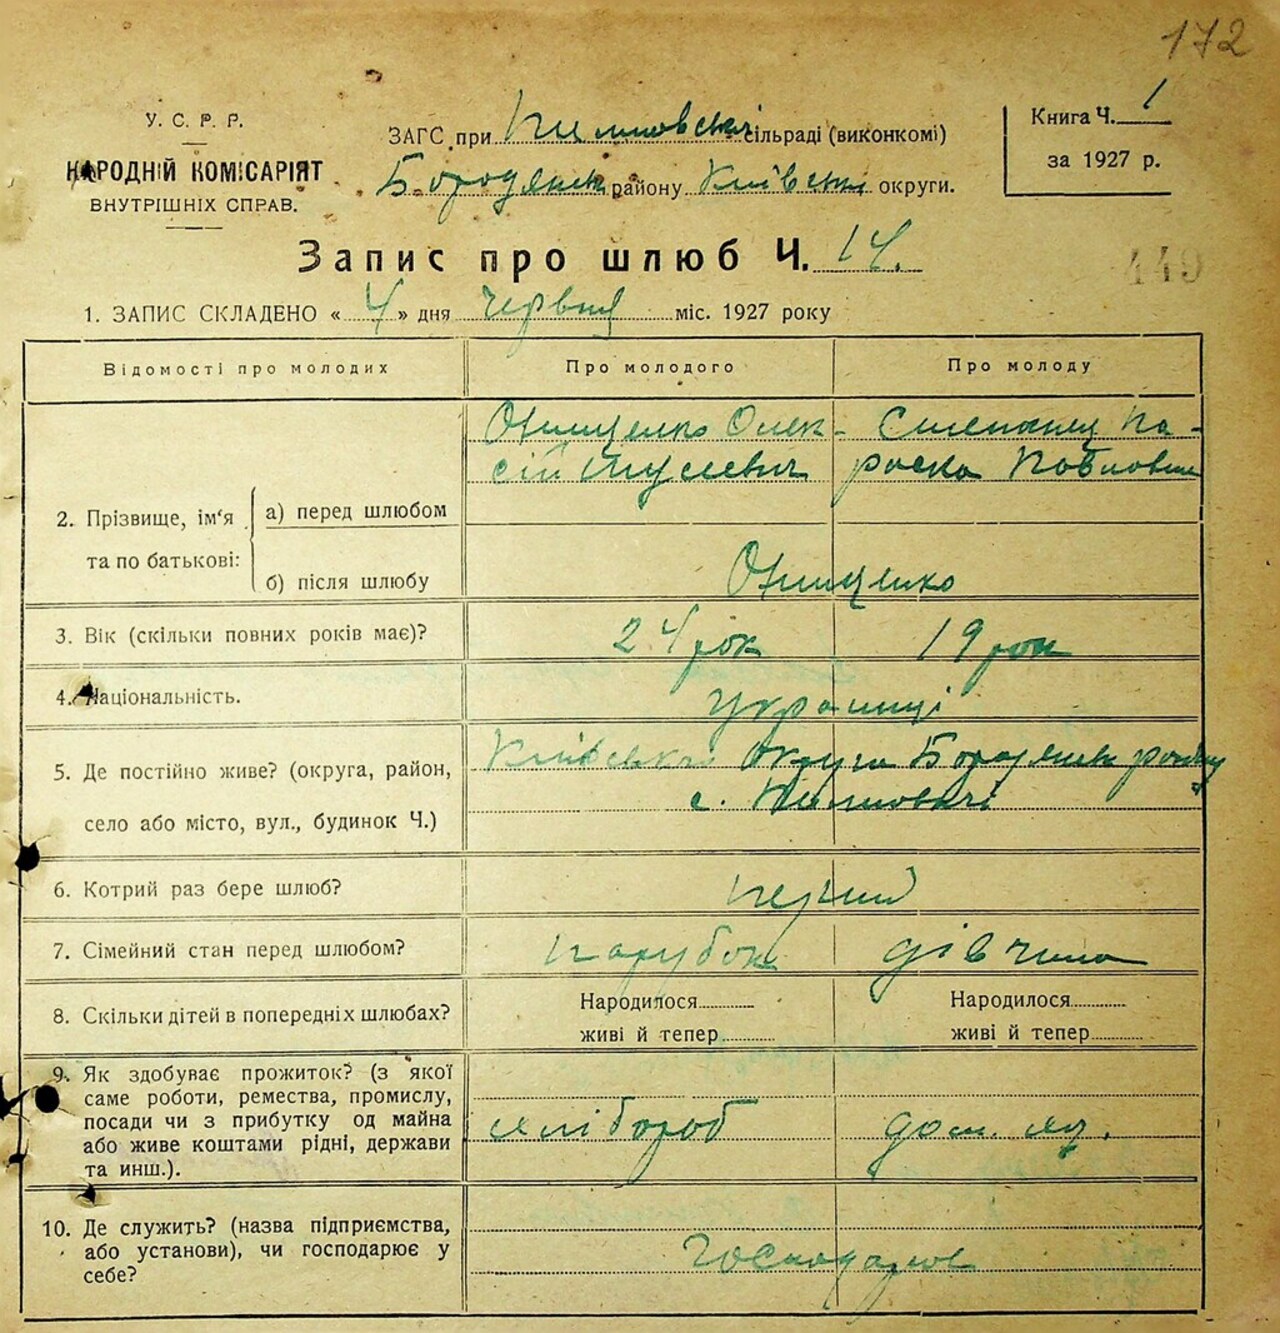 172
У. С. Р. Р.
НАРОДНІЙ КОМІСАРІЯТ
ВНУТРІШНІХ СПРАВ.
ЗАГС при сільраді (виконкомі)
Бородянськ району Київськ округи.
Книга Ч. 1
за 1927 р.
Запис про шлюб Ч. 14.
449
1. ЗАПИС СКЛАДЕНО « 4 » дня червня міс. 1927 року
Відомості про молодих
Про молодого
Про молоду
2. Прізвище, ім‘я та по батькові:
а) перед шлюбом
Онищенко Олек-
сій
Па-
раска Павловна
б) після шлюбу
Онищенко
3. Вік (скільки повних років має)?
24 рок
19 рок
4. Національність.
Українці
5. Де постійно живе? (округа, район,
село або місто, вул., будинок Ч.)
Київська округа Бородянськ району
с.
6. Котрий раз бере шлюб?
перший
7. Сімейний стан перед шлюбом?
парубок
дівчина
8. Скільки дітей в попередніх шлюбах?
Народилося
живі й тепер
Народилося
живі й тепер
9. Як здобуває прожиток? (з якої
саме роботи, ремества, промислу,
посади чи з прибутку од майна
або живе коштами рідні, держави
та инш.).
хлібороб
дом.
10. Де служить? (назва підприємства,
або установи), чи господарює у
себе?
Господарює